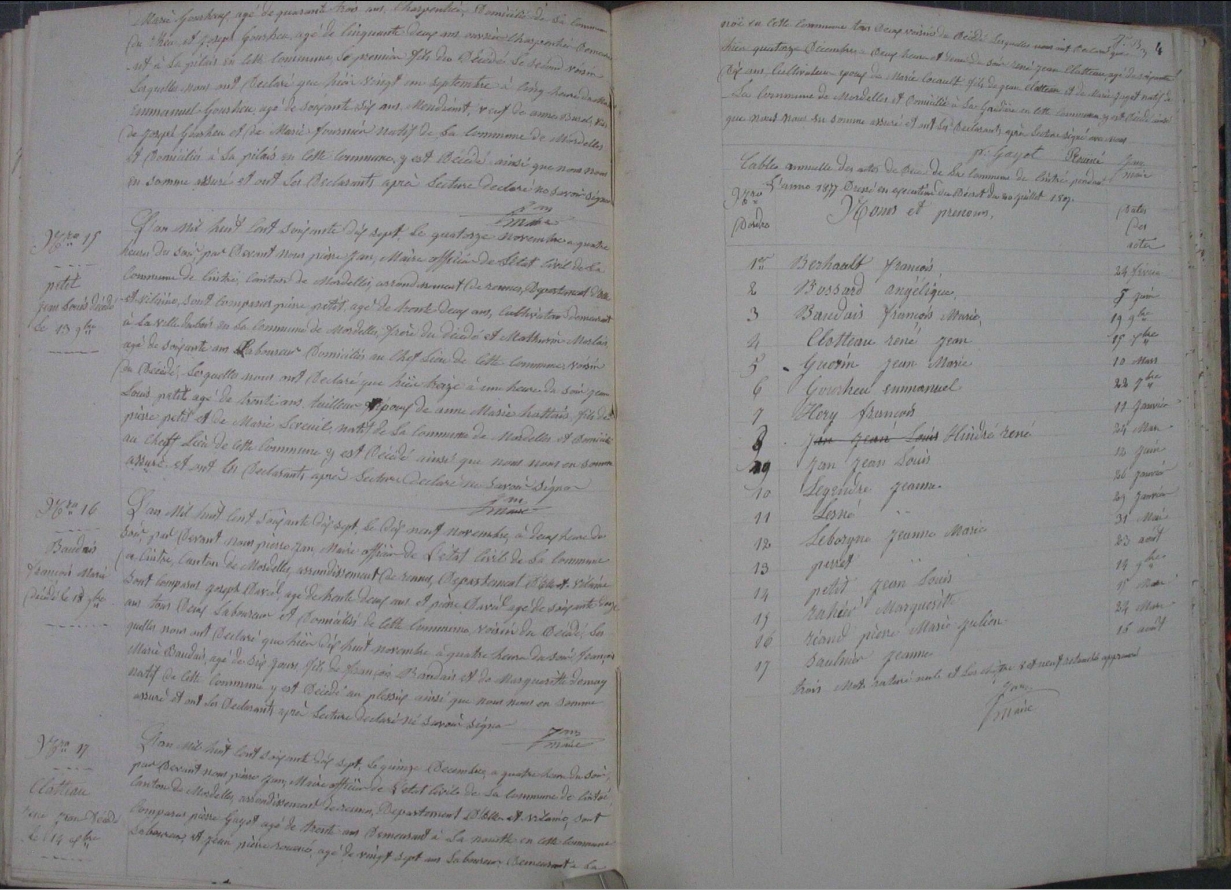 Marie Gourheu, agé de quarante trois ans, Charpentier, Domicilié de la commune
du Rheu et joseph Gourheu, agé de Cinquante Deux ans ouvrier Charpentier Demeu
rant à la pilais en Cette Commune, le premier fils du Décédé Le second voisin
Lesquels nous ont Declaré que hièr vingt un septembre à Cinq heure du
Emmanuel Gourheu, agé de soixante dix ans, Mendiant, veuf de anne
de joseph Gourheu et de Marie fournier natif de La Commune de Mordelles
Et Domicilié à La pilais en Cette Commune, y est Décédé ainsi que nous nous
en somme assuré et ont Les Declarants après Lecture declaré ne savoir signer
jan
maire
Nro 15
petit
jean Louis décédé
le 13 9bre
L'an Mil huit Cent soixante dix sept, le quatorze novembre a quatre
heures du soir par Devant nous pierre jan, Maire officier de L'etat Civil de La
Commune de Cintré, Canton de Mordelles, arrondissement de rennes, Departement d'ille
et vilaine, sont Comparus pierre petit, agé de trente deux ans, Cultivateur demeurant
à la ville dubois en La Commune de Mordelles, frere du décédé et Mathurin Morlais
agé de soixante ans Laboureur Domiciliés au Chef Lieu de Cette Commune, voisin
du Décédé, Lesquels nous ont Declaré que hièr treize à une heure du soir jean
Louis petit agé de trente ans, tailleur, epoux de anne Marie hattais, fils de
pierre petit et de Marie Lereuil, natif de La Commune de Mordelles et Domicilié
au Cheff Lieu de Cette Commune, y est Décédé ainsi que nous nous en somme
assuré et ont Les Declarants après Lecture declaré ne savoir signer
jan
maire
Nro 16
Baudais
françois Marie
décédé le 18 9bre
L'an Mil huit Cent soixante dix sept, le dix neuf novembre, à deux heure du
soir, par Devant nous pierre jan, Maire officier de L'etat Civile de La Commune
de Cintré, Canton de Mordelles, arrondissement de rennes, Departement d'ille et vilaine
sont Comparus joseph Davel, agé de trente deux ans et pierre Davel agé de soixante
ans tous Deux Laboureur et Domiciliés de Cette Commune, voisin du Décédé, Les
quelles nous ont Declaré que hièr dix huit novembre à quatre heure du soir françois
Marie Baudais, agé de dix jours fils de françois Baudais et de Marguerite demay
natif de Cette Commune y est Décédé au plessis ainsi que nous nous en somme
assuré et ont Les Declarants après Lecture declaré ne savoir signer
jan
maire
Nro 17
Clotteau
rené jean décédé
le 14 xbre
L'an Mil huit Cent soixante dix sept, Le quinze Decembre, a quatre heure du soir,
par Devant nous pierre jan, Maire officier de L'etat Civile de La Commune de Cintré,
Canton de Mordelles, arrondissement de rennes, Departement d'ille et vilaine, sont
Comparus pierre Gayot agé de trente ans Demeurant à La en cette Commune
Laboureur et jean pierre agé de vingt sept ans Laboureur Demeurant a la
4
noë en Cette Commune tous Deux voisins du Décédé Lesquelles nous ont Declaré que
hièr quatorze Decembre a Deux heure du soir rené jean Clotteau, agé de
dix ans, Cultivateur epoux de Marie fils de jean Clotteau et de Marie natif de
La Commune de Mordelles et Domicilié à La en cette Commune, y est Décédé ainsi
que nous nous en somme assuré et ont Les Declarants après Lecture signé avec nous
p. Gayot jan
maire
Tables annuelle des actes de Décé de La Commune de Cintré, pendant
L'année 1877 Dressé en execution du Décret du 20 juillet 1807.
Nro
D'ordre
Noms et prenoms,
Dates
des
actes
1er Bertrault françois, 24 fevrier
2 Bossard angélique, 5 juin
3 Baudais françois Marie, 19 9bre
4 Clotteau rené jean 15 xbre
5 Guerin jean Marie 10 Mars
6 Gourheu emmanuel 22 7bre
7 Hery françois 11 janvier
8 jan jean Louis Hindré rené 24 Mars
9 jan jean Louis 12 juin
10 Legendre jeanne 26 janvier
11 Lesné 29 janvier
12 Leborgne jeanne Marie 31 Mai
13 perret 23 août
14 petit jean Louis 14 9bre
15 rahuel Marguerite 15 Mars
16 pierre Marie julien 24 Mars
17 saulnier jeanne 16 août
trois Mots raturé nuls et Les chiffre 8 et neuf approuvé
jan
maire